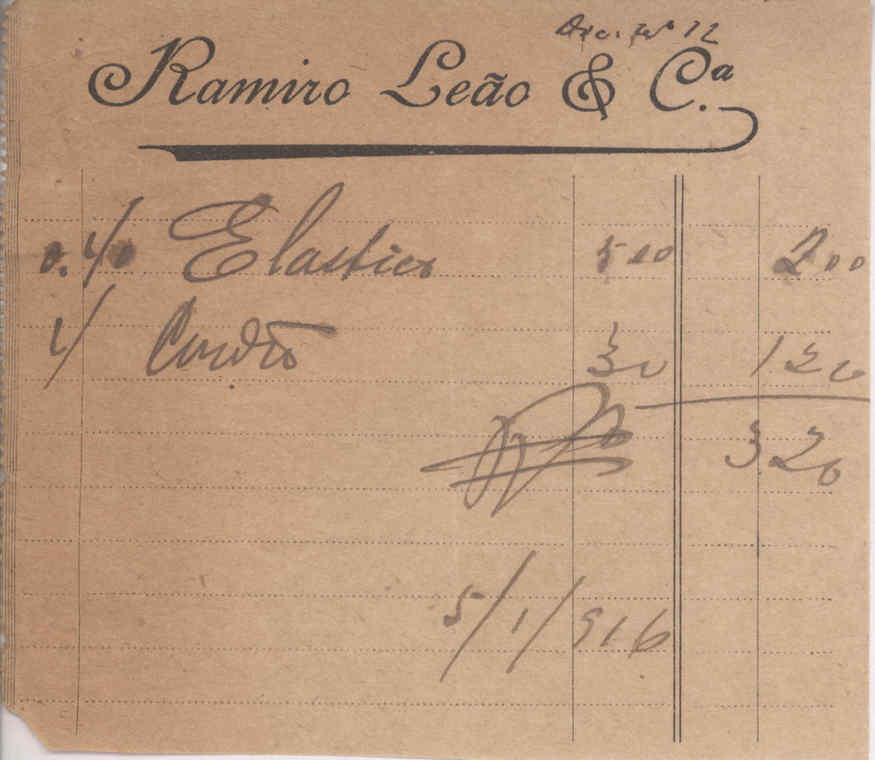 Doc. Nº 12
Ramiro Leão & C.ª
0.40 Elastico 500 200
4/ Cordão 30 120
320
5/1/916